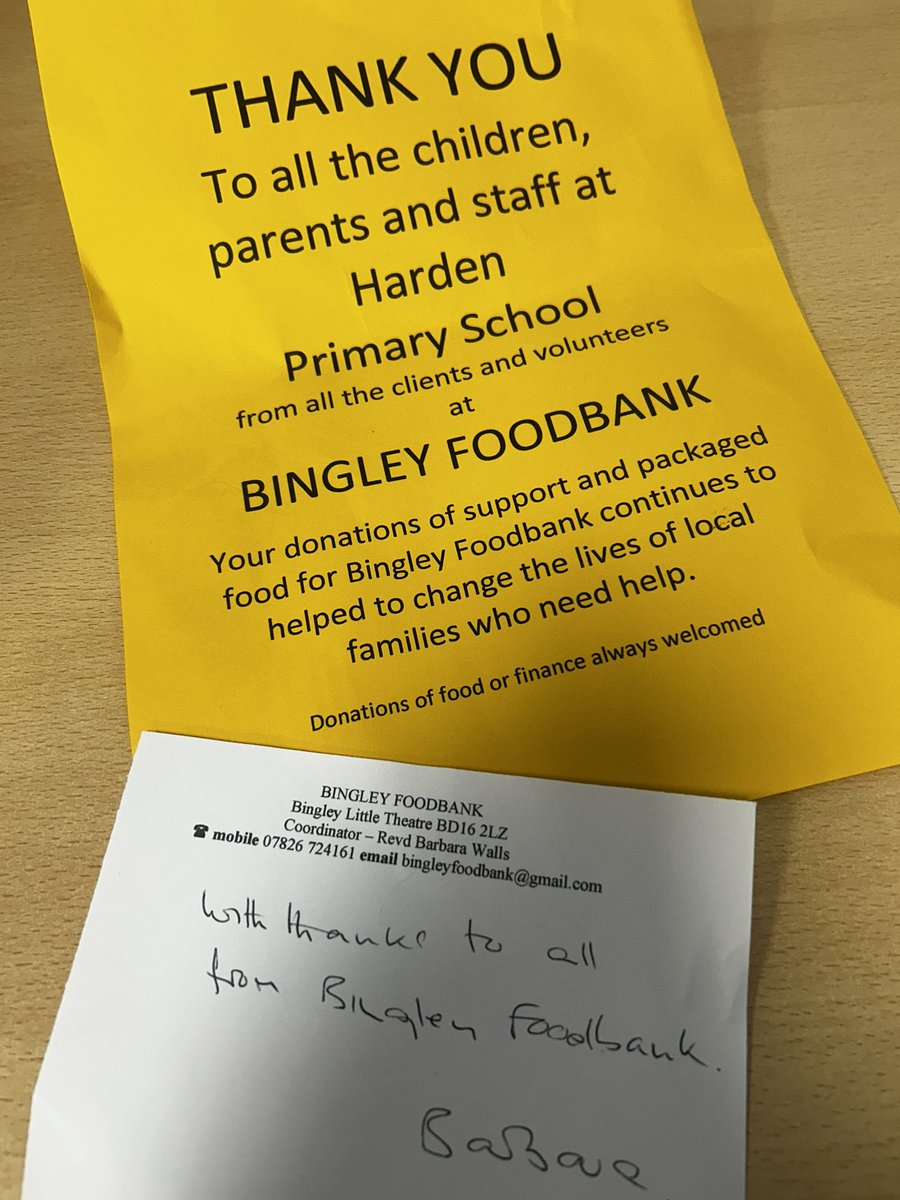 THANK YOU
To all the children,
parents and staff at
Harden
Primary School
from all the clients and volunteers
at
BINGLEY FOODBANK
Your donations of support and packaged
food for Bingley Foodbank continues to
helped to change the lives of local
families who need help.
Donations of food or finance always welcomed
BINGLEY FOODBANK
Bingley Little Theatre BD16 2LZ
Coordinator – Revd Barbara Walls
☎ mobile 07826 724161 email bingleyfoodbank@gmail.com
With thanks to all
from Bingley Foodbank.
Barbara